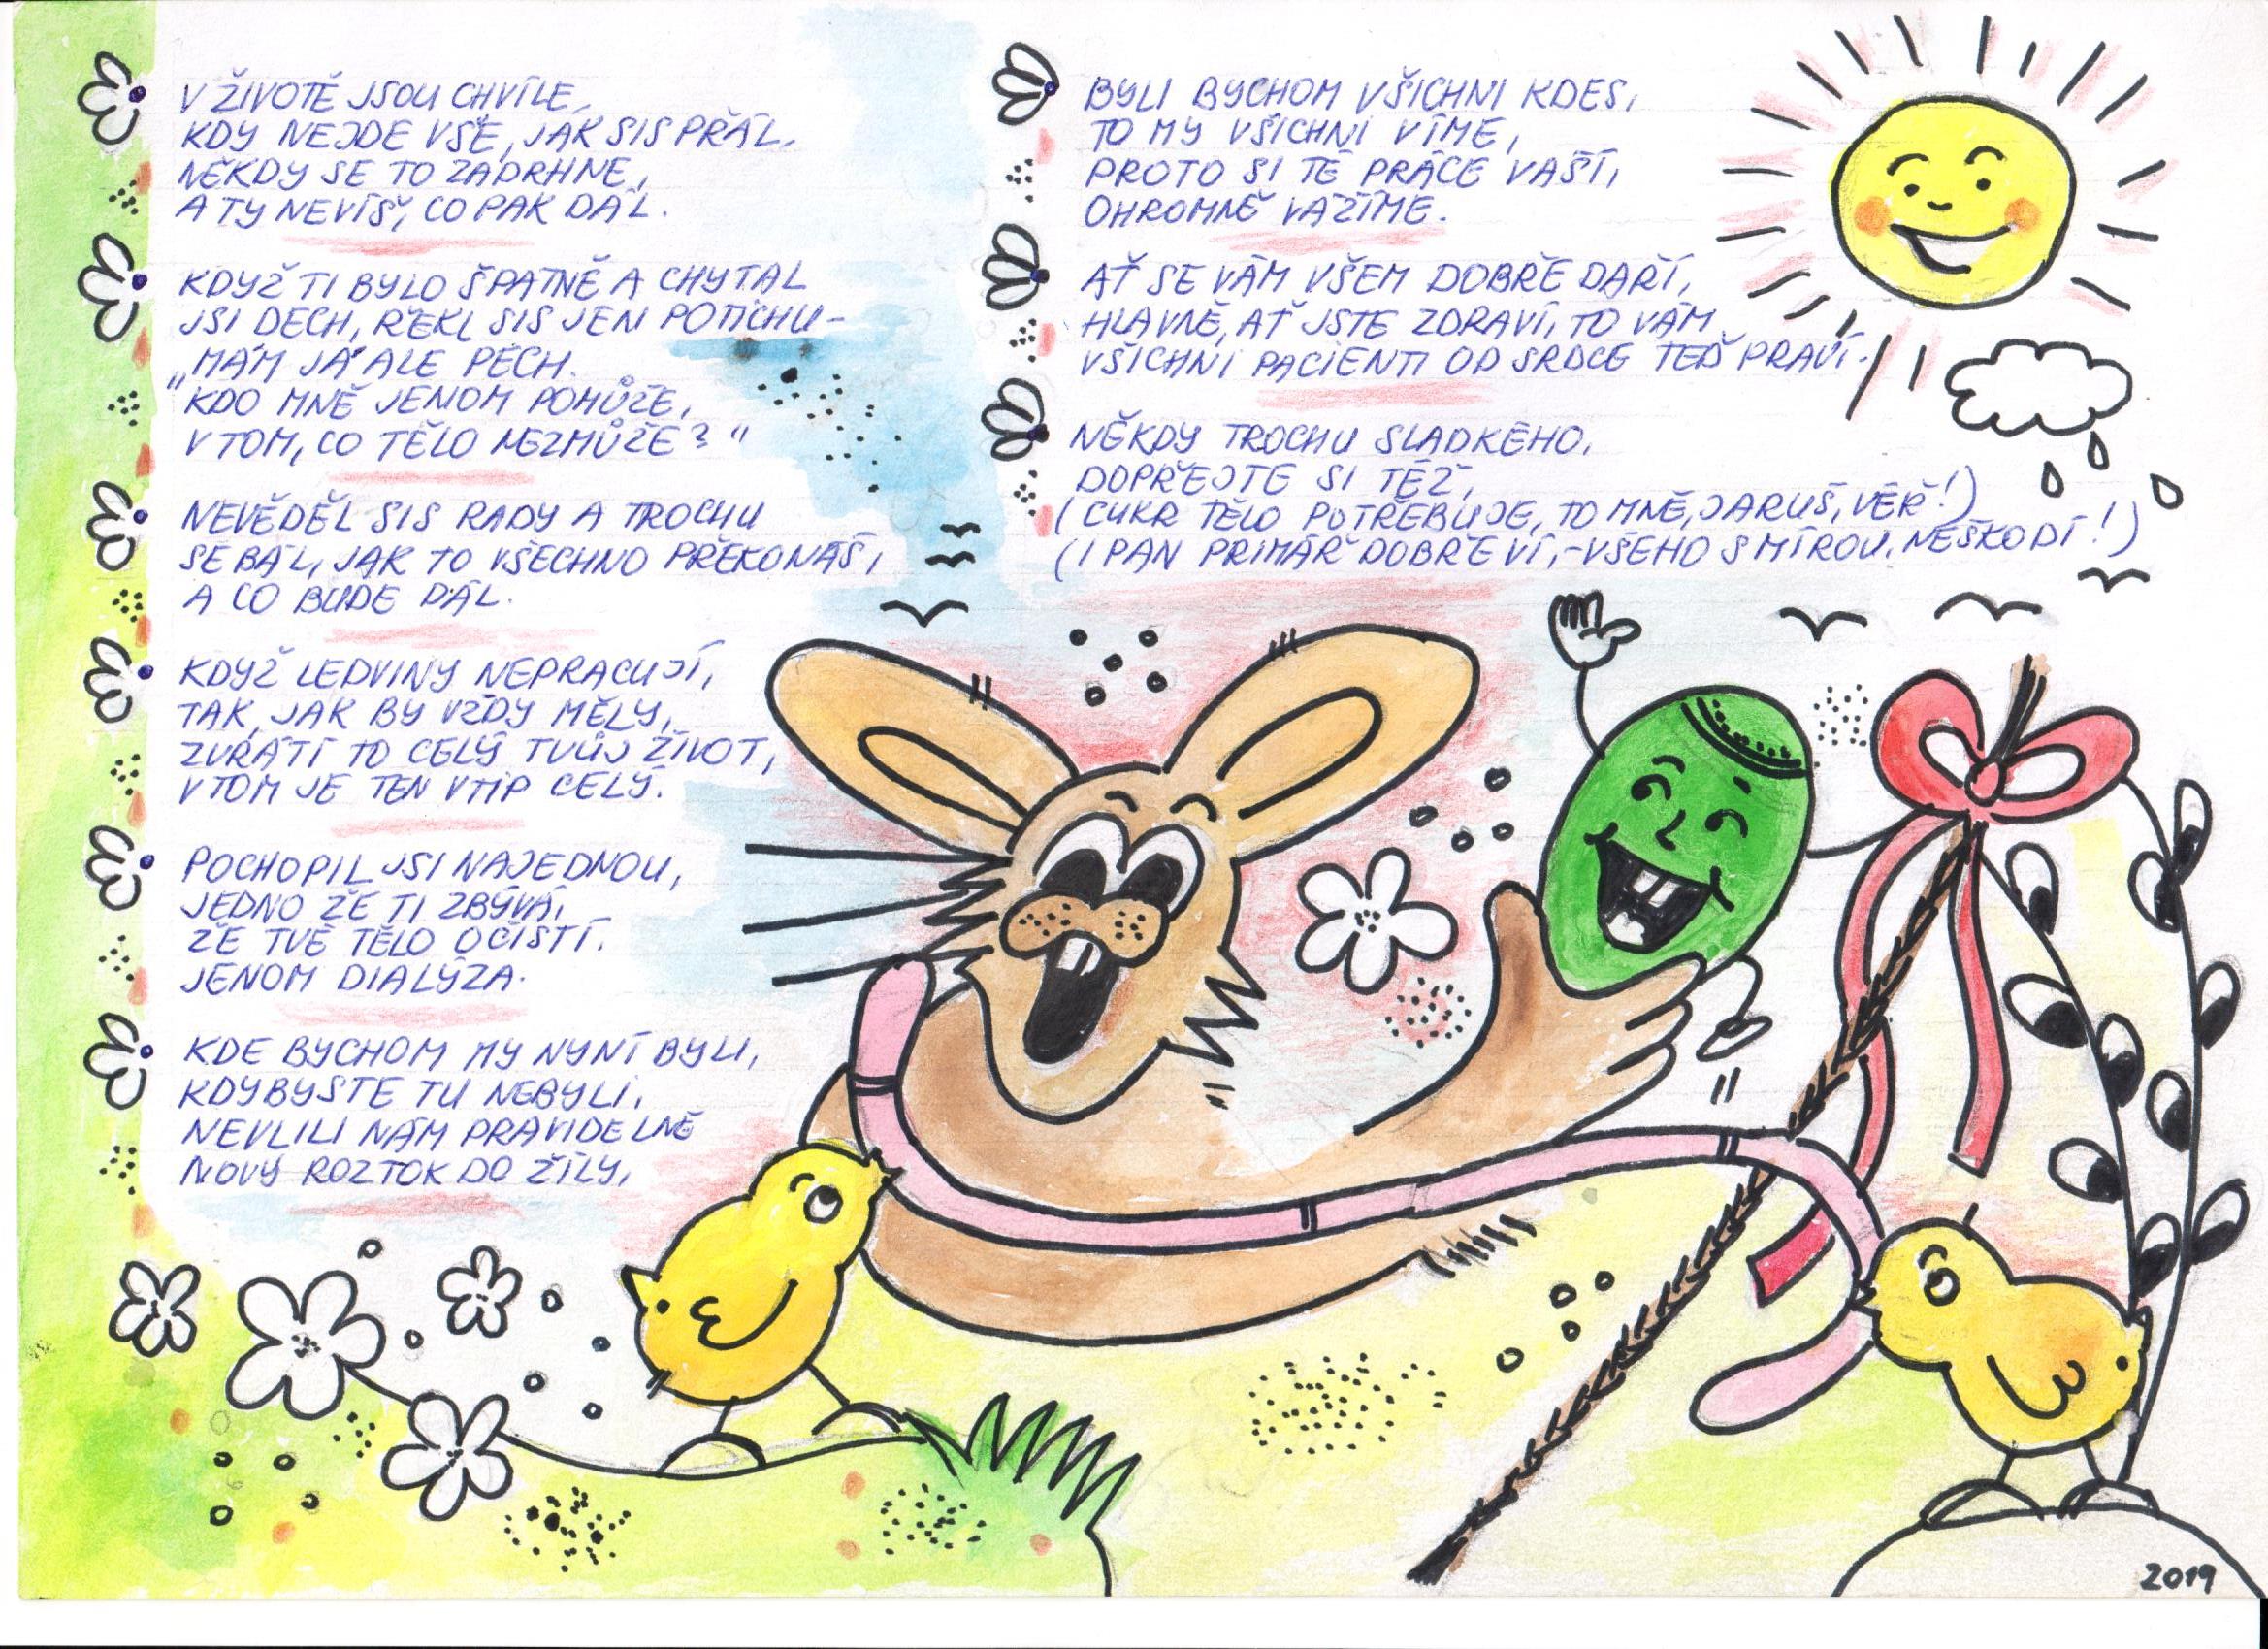 V ŽIVOTĚ JSOU CHVÍLE,
KDY NEJDE VŠE, JAK SIS PŘÁL.
NĚKDY SE TO ZADRHNE,
A TY NEVÍŠ, CO PAK DÁL.
KDYŽ TI BYLO ŠPATNĚ A CHYTAL
JSI DECH, ŘEKL SIS JEN POTICHU -
„MÁM JÁ ALE PECH.
"KDO MNĚ JENOM POMŮŽE,
V TOM, CO TĚLO NEZMŮŽE?"
NEVĚDĚL SIS RADY A TROCHU
SE BÁL, JAK TO VŠECHNO PŘEKONÁŠ,
A CO BUDE DÁL.
KDYŽ LEDVINY NEPRACUJÍ,
TAK, JAK BY VŽDY MĚLY,
ZVRÁTÍ TO CELÝ TVŮJ ŽIVOT,
V TOM JE TEN VTIP CELÝ.
POCHOPIL JSI NAJEDNOU,
JEDNO ŽE TI ZBÝVÁ,
ŽE TVÉ TĚLO OČISTÍ.
JENOM DIALÝZA.
KDE BYCHOM MY NYNÍ BYLI,
KDYBYSTE TU NEBYLI,
NEVLILI NÁM PRAVIDELNĚ
NOVÝ ROZTOK DO ŽÍLY,
BYLI BYCHOM VŠICHNI KDES,
TO MY VŠICHNI VÍME,
PROTO SI TÉ PRÁCE VAŠÍ,
OHROMNĚ VÁŽÍME.
AŤ SE VÁM VŠEM DOBŘE DAŘÍ,
HLAVNĚ, AŤ JSTE ZDRAVÍ, TO VÁM
VŠICHNI PACIENTI OD SRDCE TEĎ PRAVÍ.
NĚKDY TROCHU SLADKÉHO,
DOPŘEJTE SI TÉŽ,
(CUKR TĚLO POTŘEBUJE, TO MNĚ, JARUŠ, VĚŘ!)
(I PAN PRIMÁŘ DOBŘE VÍ, - VŠEHO S MÍROU, NEŠKODÍ!)
2019